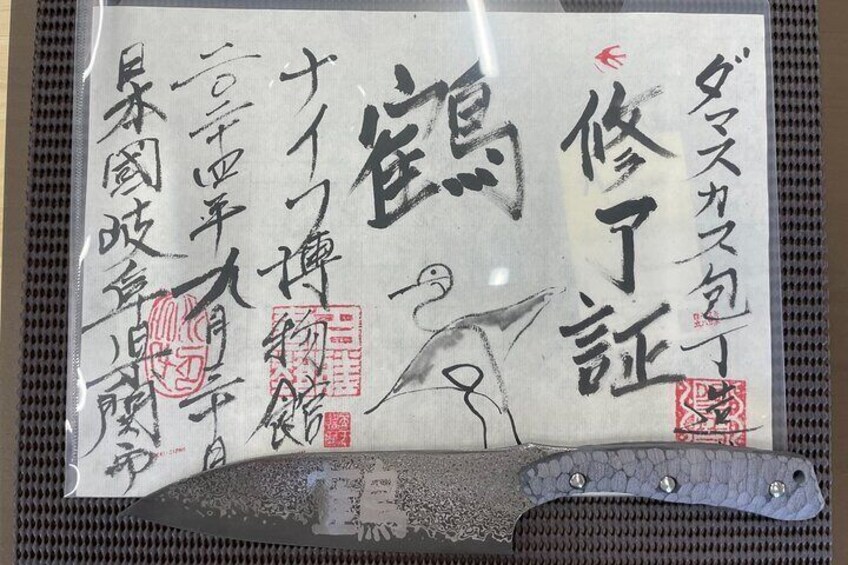 ダマスカス包丁造
修了証
鶴
ナイフ博物館
二〇二十四年九月三十日
日本國岐阜県關市
鶴